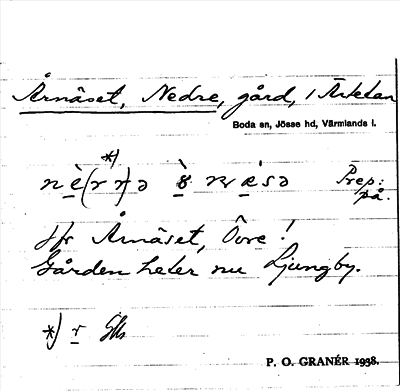 Årnäset, Nedre, gård, i Årbetan
Boda sn, Jösse hd, Värmlands l.
*)
nè(r r)ə ꝸ̀ rnæ̀sə Prep:
på.
Jfr Årnäset, Övre!
Gården heter nu Ljungby.
*) r
P. O. GRANÉR 1938.